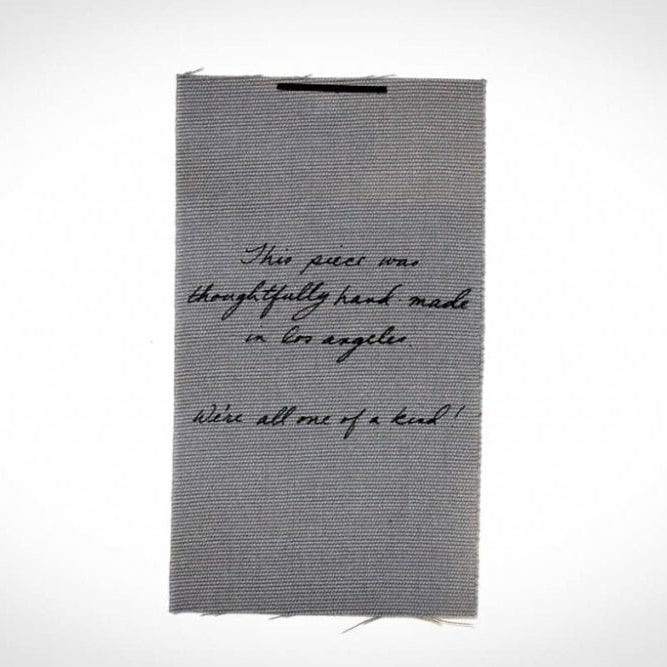 This piece was
thoughtfully hand-made
in los angeles.
We're all one of a kind!